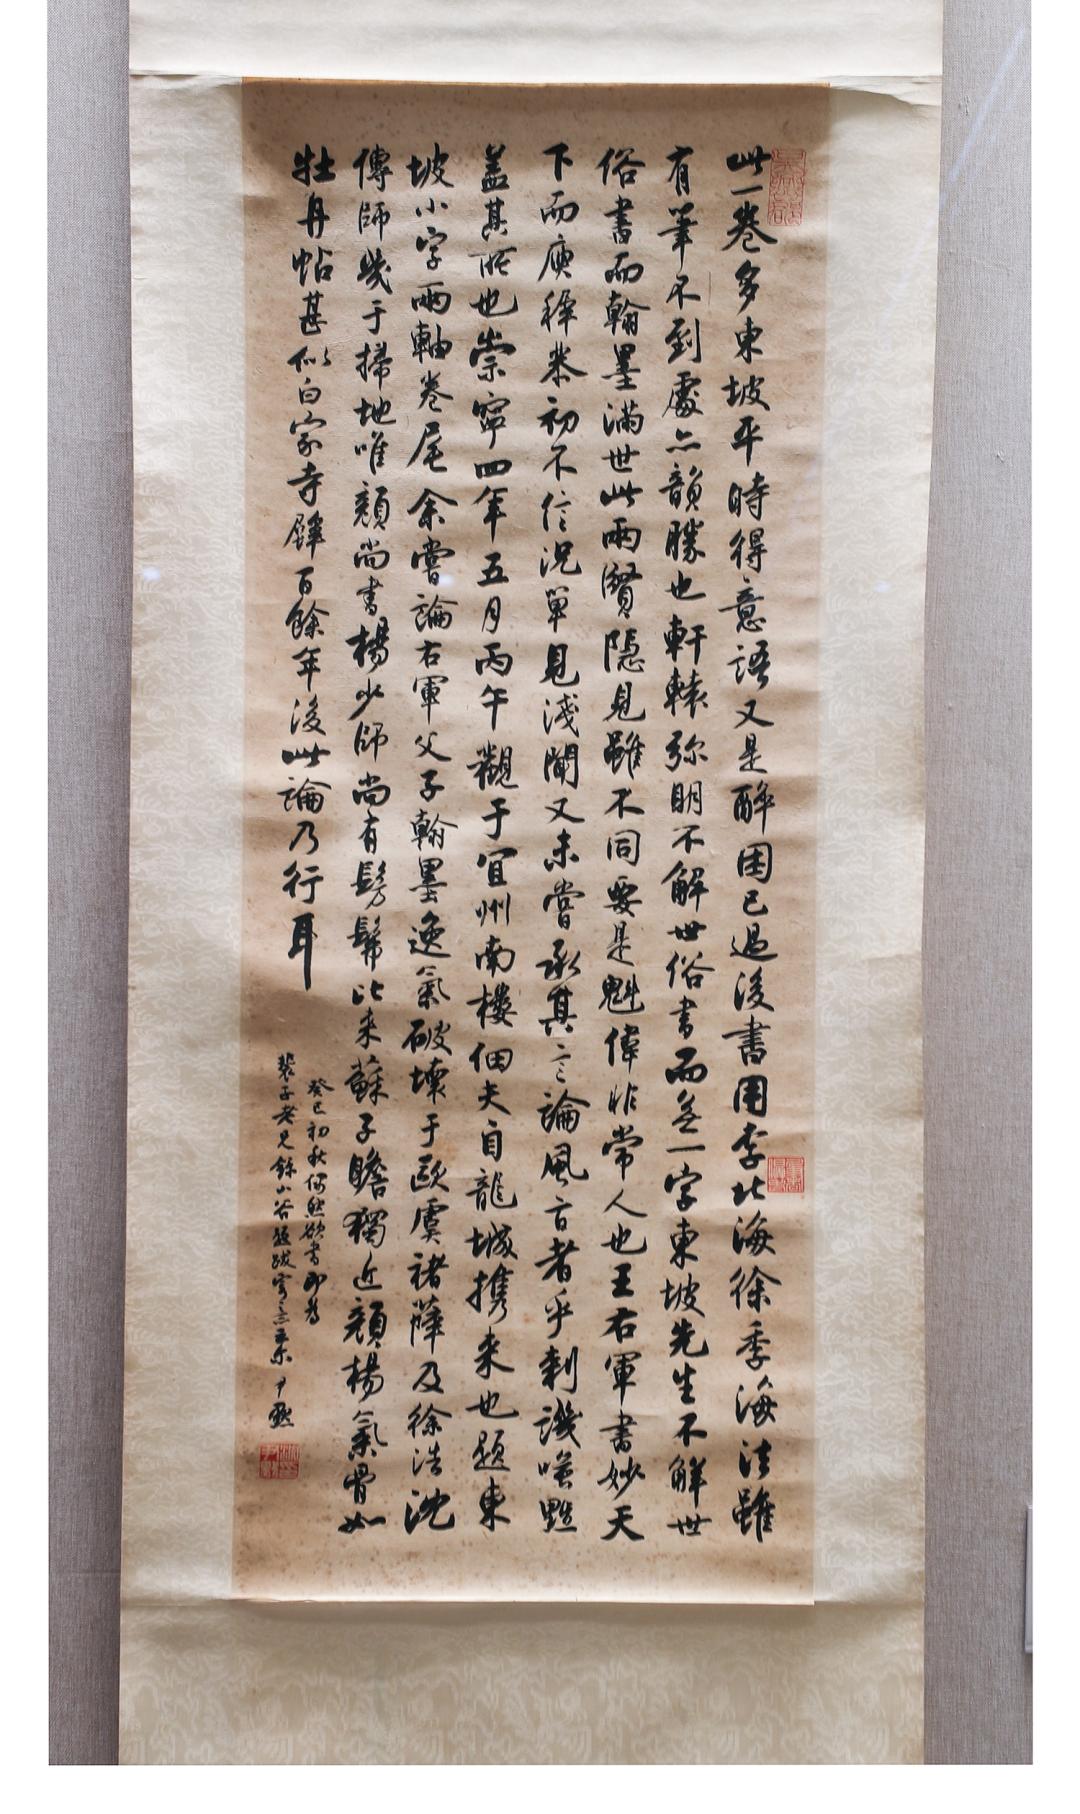 此一卷多東坡平時得意語又是醉困已過後書用李北海徐季海法雖
有筆不到處亦韻勝也軒轅弥明不解世俗書而無一字東坡先生不解世
俗書而翰墨滿世此兩賢隱見雖不同要是魁偉非常人也王右軍書妙天
下而庾稺恭初不信況單見淺聞又未嘗承其言論風旨者乎刺譏嗤點
蓋其所也崇寧四年五月丙午觀于宜州南樓佃夫自龍城攜來也題東
坡小字兩軸卷尾余嘗論右軍父子翰墨逸氣破壞于歐虞褚薛及徐浩沈
傳師幾于掃地唯顏尚書楊少師尚有髣髴比来蘇子瞻獨近顏楊氣骨如
牡丹帖甚似白家寺壁百餘年後此論乃行耳
癸巳初秋偶然欲書即為
裴子老兄錄山谷題跋寄意京 尹默